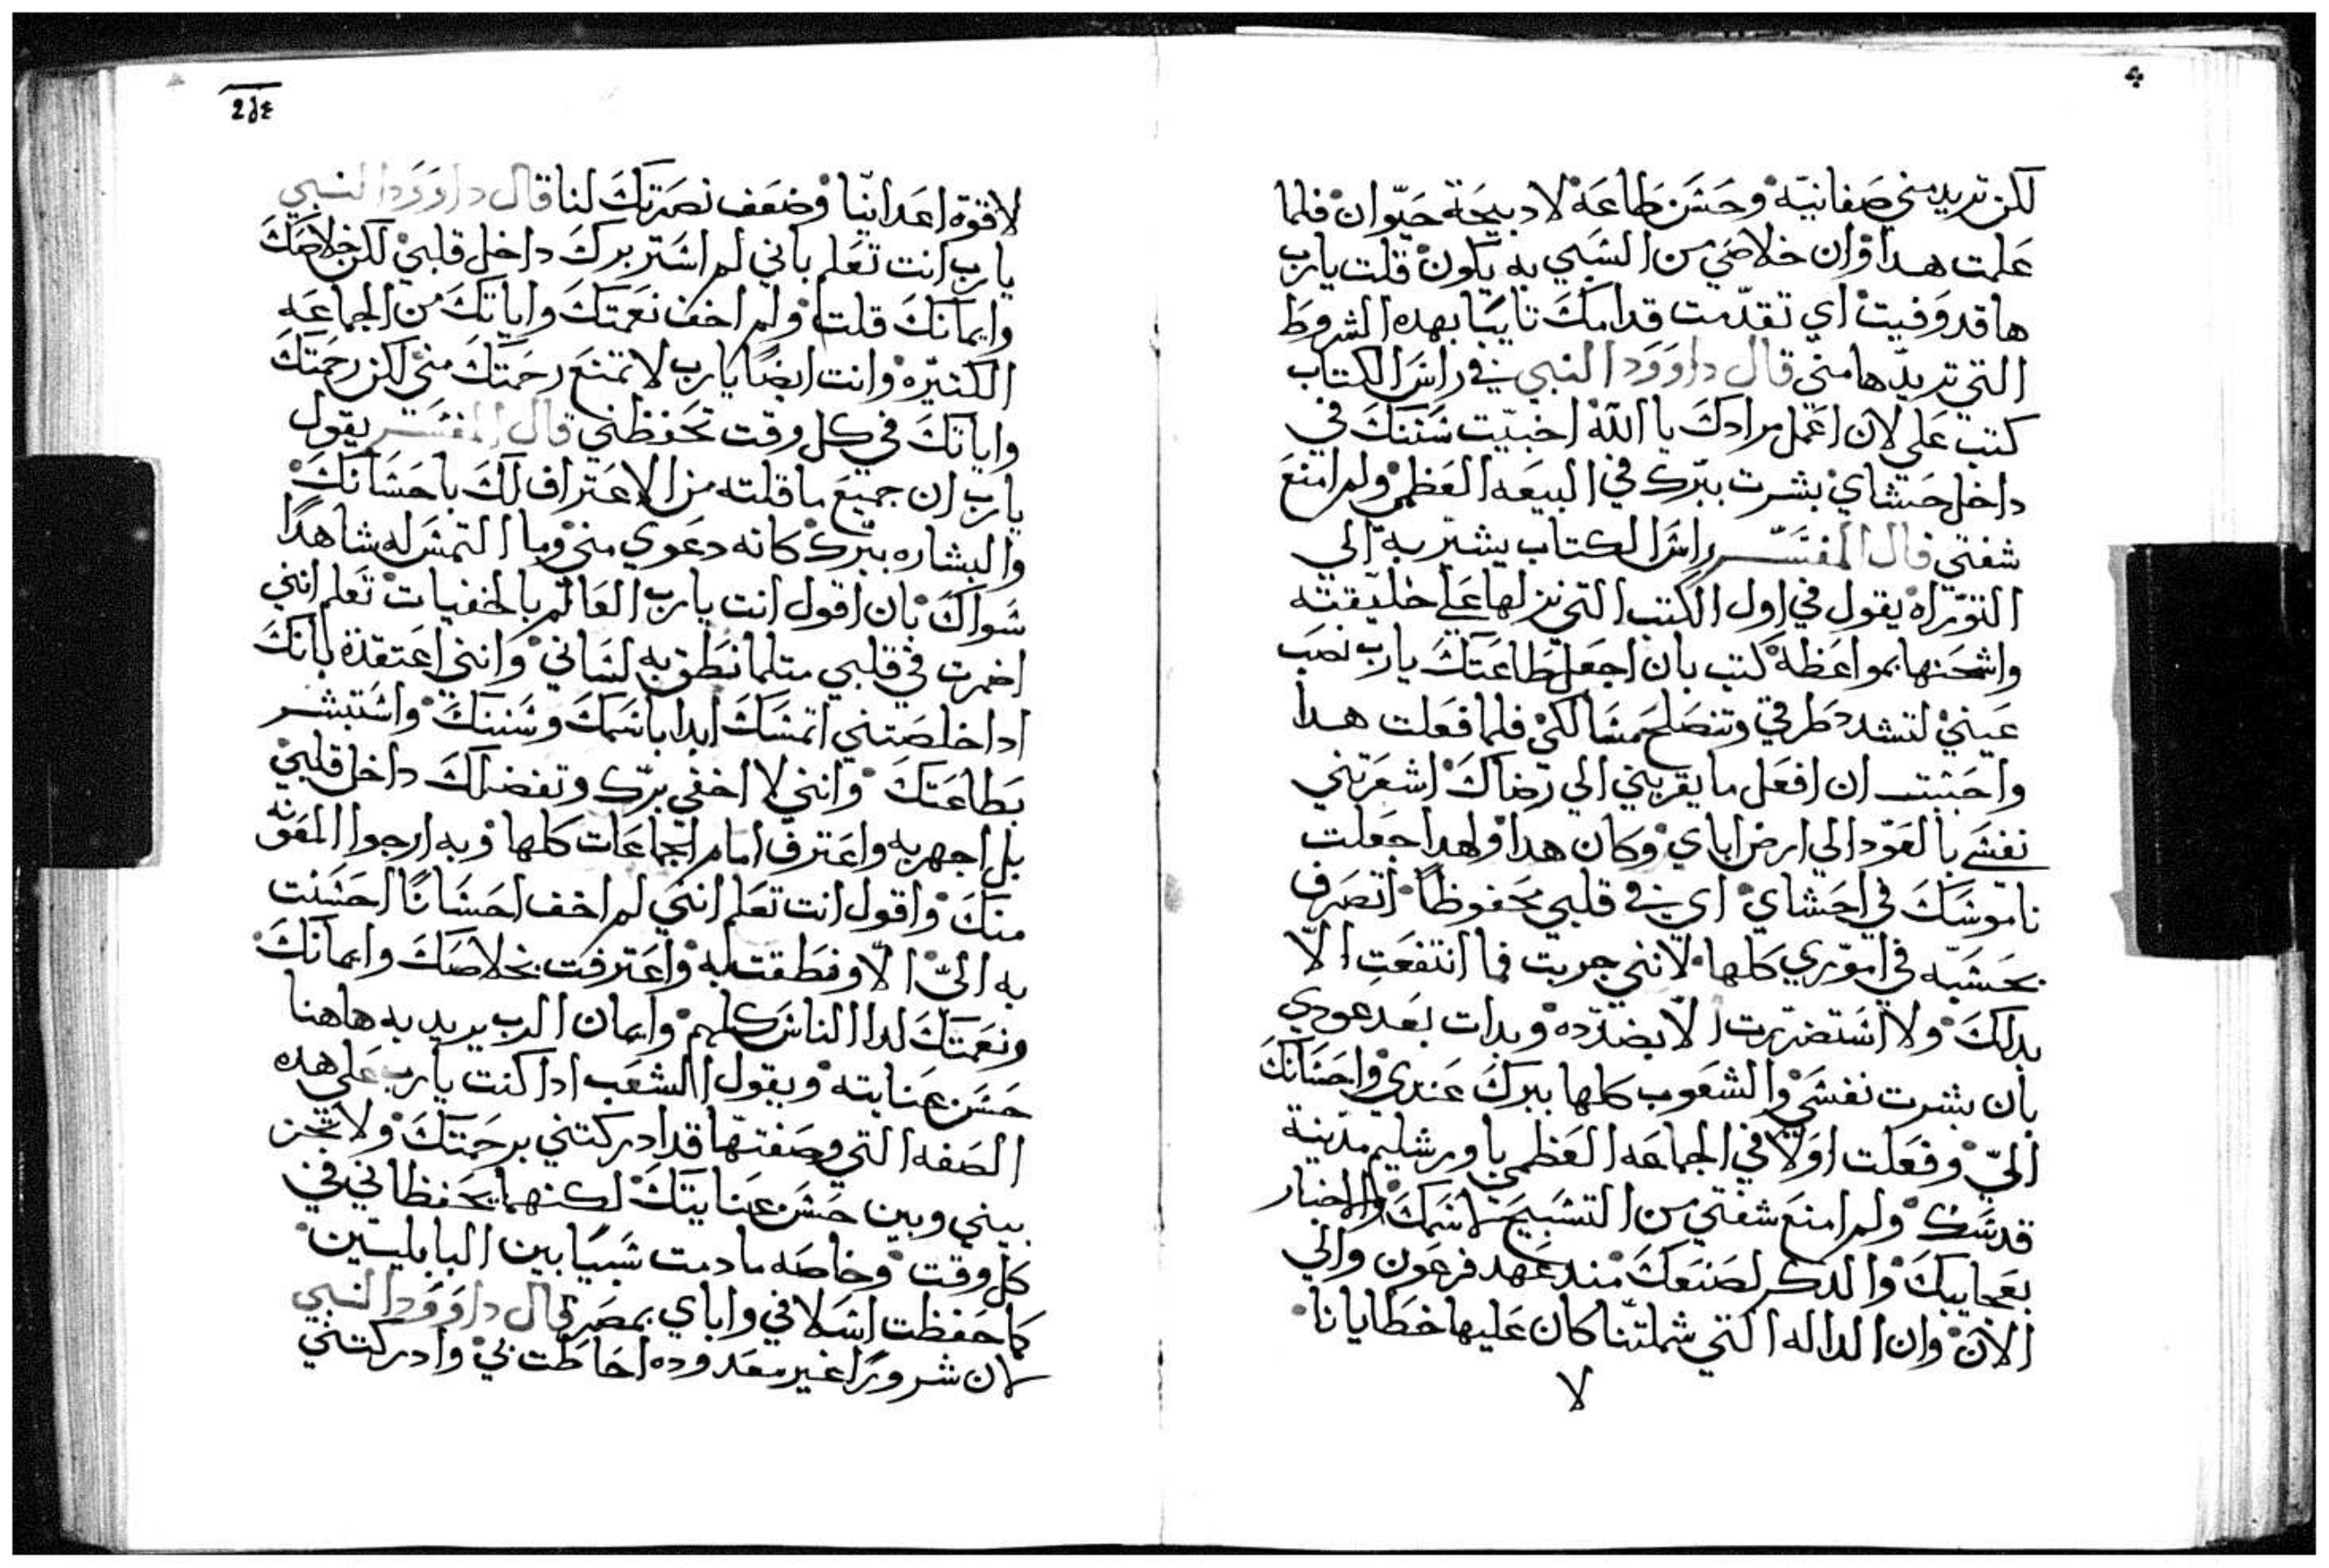 لكن تريد مني صفانيّة وحَسَن طاعَة لا دبيحَة حَيّوان فلما
عَلمت هدا وان خلاصَي من السَبي به يَكون قلت يارب
ها قد وَفيت اي تقدّمت قدامكَ تايبًا بهده الشروط
التي تريدّها مني قال داوَوَد النبي في راسَ الكتاب
كتب عَلي لان اعَمل مرادكَ يا اللّه اخبيّت سَننكَ في
داخل حَشاي بشرت ببّرك في البيعَه العَظمي ولم امنعَ
شفتي قال المفسَّر راسَ الكتاب يشيّر به الي
التوّراه يقول في اول الكتب التي نزلها عَلي خليّقته
واشحَنها بمواعَظه كتب بان اجعَل طاعَتكَ يارب نصَب
عَينيّ لتشدد طرقي وتنصَلح مسَالكي فلما فعَلت هدا
واحَببت ان افعَل ما يقربني الي رضاكَ اشعَرتني
نفسَي بالعَوّد الي ارض اباي وكان هدا ولهدا جعَلت
ناموسَكَ في احَشاي اي في قلبي محَفوظًا اتصَرف
بحَسَبّه في امَوّري كلها لانني جربت فما انتفعَت الّا
بدلكَ ولا اسَتضرّرت الّا بضدّده وبدات بعَد عودي
بان بشرت نفسَي والشعَوب كلها ببركَ عَندي واحَسَانكَ
اليّ وفعَلت اوَلًا في الجماعَه العَظمي باورشليم مدّينة
قدسَك ولم امنعَ شفتي من التسَبيحَ لاسَمكَ والاخبار
بعَجاييبكَ والدكر لصَنيعَكَ مند عَهد فرعَون والي
الان وان الداله التي شملتّنا كان عَليها خطَايانا
لا
214
لا قوّة اعَداينّا وضعَف نصَرتكَ لنا قال داوَوَد النبي
يارب انت تعَلم باني لم اسَتر بركَ داخل قلبي لكن خلاصَكَ
وايمانكَ قلت ولم اخف نعَمتكَ واياتكَ من الجماعَه
الكثيّره وانت ايضًا يارب لا تمنعَ رحَمتكَ مني لكن رحَمتكَ
واياتكَ في كل وقت تحَفظني قال المفسَّر يقول
يارب ان جميعَ ما قلته من الاعَتراف لكَ باحَسَانكَ
والبشاره ببّرك كانه دعَوي مني وما التمسَ له شاهدًا
سَواكَ بان اقول انت يارب العَالم بالخفيات تعَلم انني
اضمرت في قلبي متلما نطَق به لسَاني وانني اعَتقدّة بانكَ
ادا خلصَتني اتمسَكَ ابدا باسَمكَ وسَننكَ واسَتبشر
بطَاعَتكَ وانني لا اخفي برّك وتفضلكَ داخل قلبي
بل اجهر به واعَترف امام الجماعَات كلها وبه ارجوا المعَونه
منكَ واقول انت تعَلم انني لم اخف احَسَانًا احَسَنت
به اليّ الّا ونطَقت به واعَترفت بخلاصَكَ وايمانكَ
ونعَمتكَ لدا الناسَ كلهم وايمان الرب يريد به هاهنا
حَسَن عَنايته ويقول الشعَب ادا كنت يارب عَلي هده
الصَفه التي وصَفتها قد ادركتني برحَمتكَ ولا تحَجز
بيني وبين حَسَن عَنايتكَ لكنهما يحَفظاني في
كل وقت وخاصَه ما دمت سَبيًا بين البابليّين
كما حَفظت اسَلافي واباي بمصَر قال داوَوَد النبي
لان شرورًا غير معَدوده احَاطَت بي وادركتني